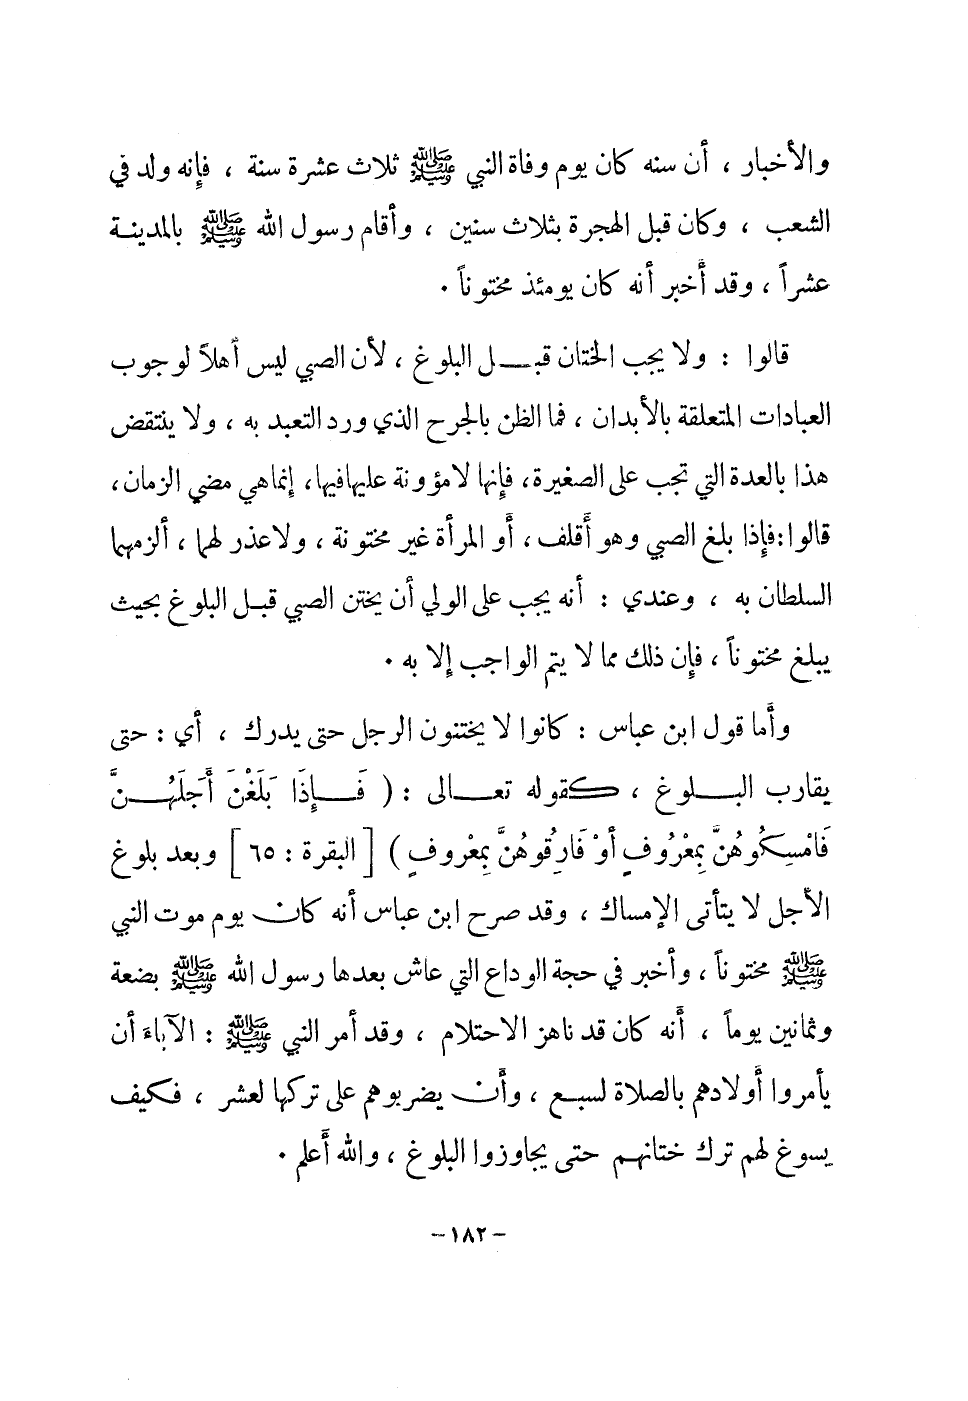 والأخبار ، أن سنه كان يوم وفاة النبي ﷺ ثلاث عشرة سنة ، فإنه ولد في
الشعب ، وكان قبل الهجرة بثلاث سنين ، وأقام رسول الله ﷺ بالمدينة
عشراً ، وقد أخبر أنه كان يومئذ مختوناً .
قالوا : ولا يجب الختان قبل البلوغ ، لأن الصبي ليس أهلاً لوجوب
العبادات المتعلقة بالأبدان ، فما الظن بالجرح الذي ورد التعبد به ، ولا ينتقض
هذا بالعدة التي تجب على الصغيرة، فإنها لامؤونة عليهافيها، إنماهي مضي الزمان،
قالوا:فإذا بلغ الصبي وهو أقلف، أو المرأة غير مختونة ، ولاعذر لهما ، ألزمهما
السلطان به ، وعندي : أنه يجب على الولي أن يختن الصبي قبل البلوغ بحيث
يبلغ مختوناً ، فإن ذلك مما لا يتم الواجب إلا به .
وأما قول ابن عباس : كانوا لا يختنون الرجل حتى يدرك ، أي : حتى
يقارب البلوغ ، كقوله تعالى : ( فَإِذَا بَلَغْنَ أَجَلَهُنَّ
فَامْسِكُوهُنَّ بِمَعْرُوفٍ أوْ فَارِقُوهُنَّ بِمَعْروفٍ ) [ البقرة : ٦٥ ] وبعد بلوغ
الأجل لا يتأتى الإمساك ، وقد صرح ابن عباس أنه كان يوم موت النبي
ﷺ مختوناً ، وأخبر في حجة الوداع التي عاش بعدها رسول الله ﷺ بضعة
وثمانين يوماً ، أنه كان قد ناهز الاحتلام ، وقد أمر النبي ﷺ : الآباءَ أن
يأمروا أولادهم بالصلاة لسبع ، وأن يضربوهم على تركها لعشر ، فكيف
يسوغ لهم ترك ختانهم حتى يجاوزوا البلوغ ، والله أعلم .
- ١٨٢ -